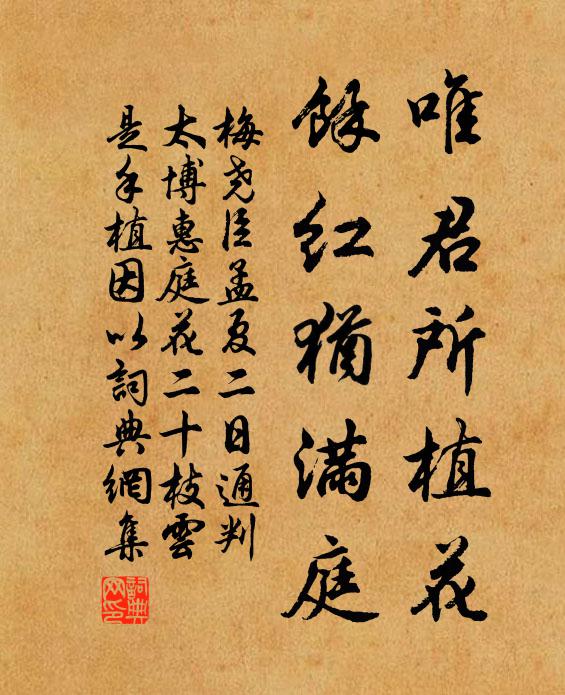 唯君所植花
餘紅猶满庭
梅尧臣孟夏二日通判
太博惠庭花二十枝雲
是手植因以詞典網集
詞典
网印